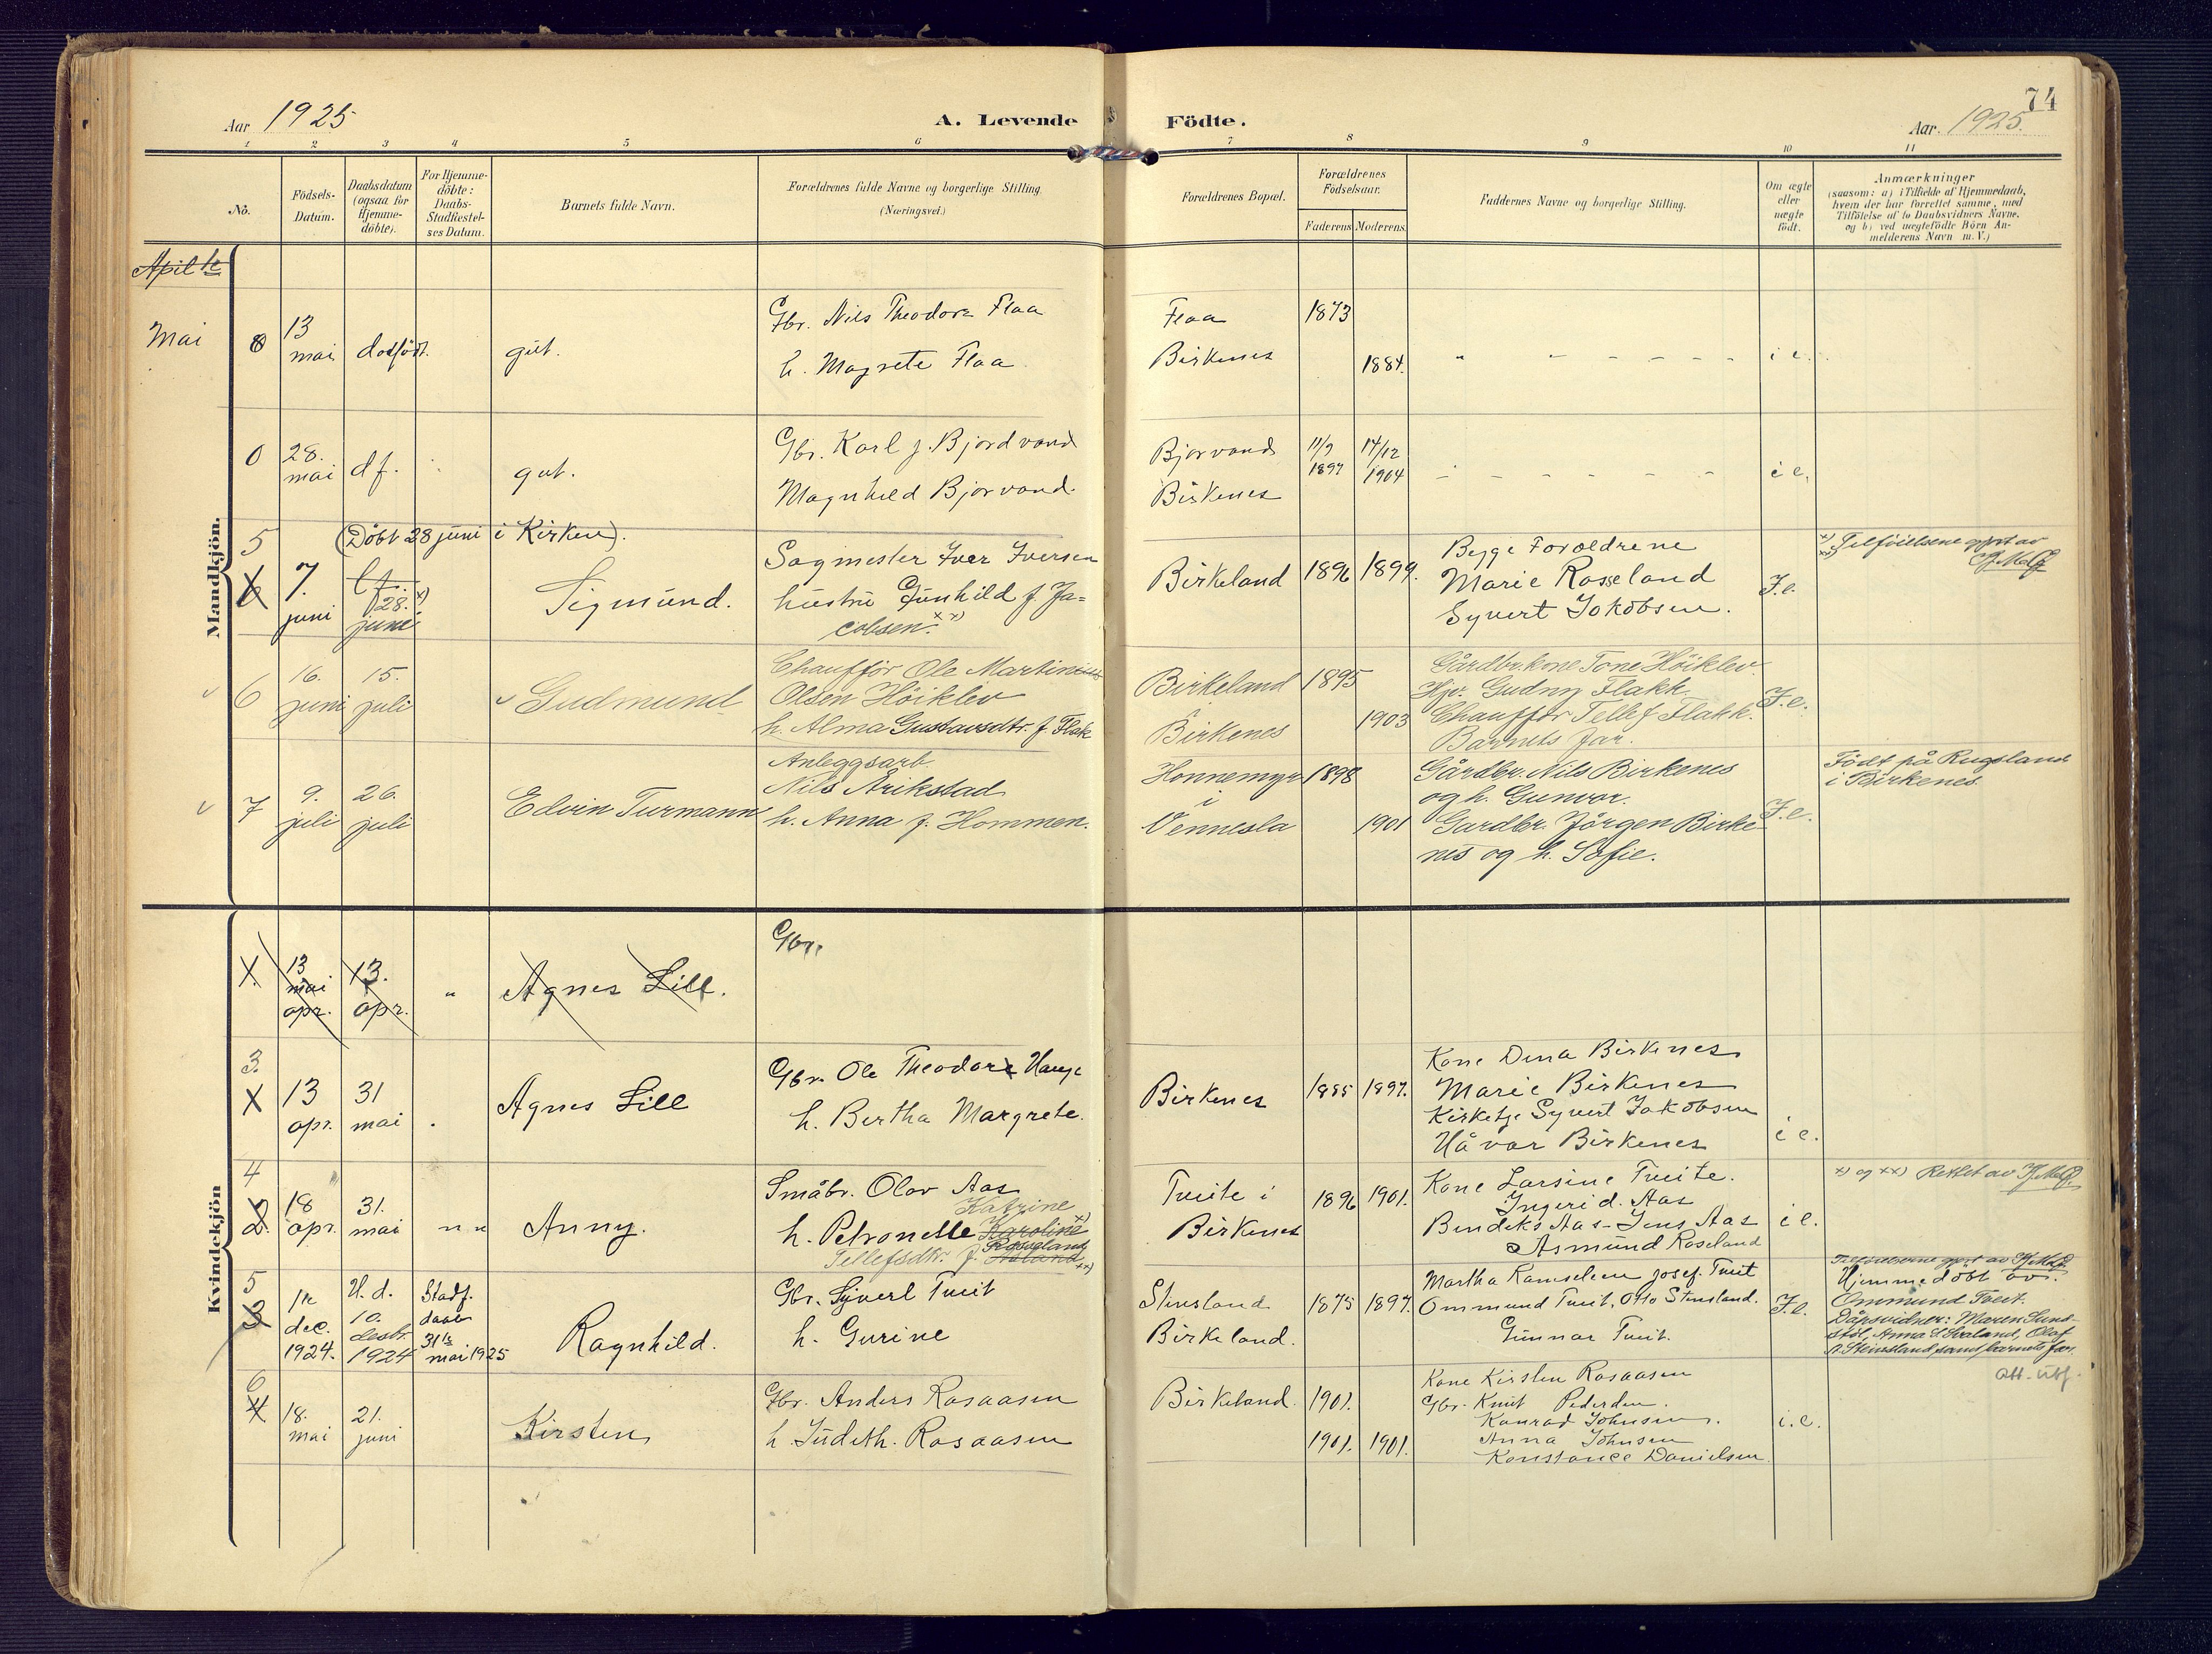 74
Aar 1925
A. Levende Födte.
Aar. 1925.
1 2 3 4 5 6 7 8 9 10 11
No.
Födsels-
Datum.
Daabsdatum
(ogsaa for
Hjemme-
döbte).
For Hjemme-
döbte:
Daabs-
Stadfæstel-
ses Datum.
Barnets fulde Navn.
Forældrenes fulde Navne og borgerlige Stilling.
(Næringsvei.)
Forældrenes Bopæl.
Forældrenes
Födselsaar.
Faderens Moderens
Faddernes Navne og borgerlige Stilling.
Om ægte
eller
uægte
födt.
Anmærkninger
(saasom: a) i Tilfælde af Hjemmedaab,
hvem der har forrettet samme, med
Tilföielse af to Daabsvidners Navne,
og b) ved uægtefödte Börn An-
melderens Navn m. V.)
Mandkjön.
Mai
13
mai
dodfödt.
gut.
Gbr. Nils Theodor Flaa
h. Magrete Flaa
Flaa
Birkenes
1873
1884.
i e.
0
28.
mai
df.
gut.
Gbr. Karl J. Bjordvand
Magnhild Bjorvand.
Bjorvand
Birkenes
11/9
1897
14/12
1904
i e.
5
(Döbt 28 juni i Kirken).
7.
juni
28. x)
juni
Sigmund.
Sagmester Iver Iversen
hustru Gunhild f. Ja=
cobsen. xx)
Birkeland
1896
1899.
Begge Foroeldrene
Marie Rosseland
Syvert Jokobsen.
F.e.
x) Tilföielsene gjort av
xx)
6
16.
juni
15.
juli
Gudmund
Chaufför Ole Martin
Olsen Höiklev
h. Alma Gustavsdtr. f. Flak
Birkeland
Birkenes
1895
1903
Gårdbrkone Tone Höiklev.
Hjv. Gudny Flakk.
Chaufför Tellef Flakk.
Barnets far.
F.e.
7
9.
juli
26.
juli
Edvin Turmann
Anleggsarb.
Nils Årikstad
h. Anna f. Hommen.
Honnemyr
i
Vennesla
1898
1901
Gårdbr. Nils Birkenes
og h. Gunvor.
Gardbr. Jörgen Birke-
nes og h. Sofie.
F.e.
Födt på Rugsland
i Birkenes.
Kvindekjön
13
mai
apr.
13.
apr.
"
Agnes Lill.
Gbr.
3.
13
apr.
31
mai
Agnes Lill
Gbr. Ole Theodor Hauge
h. Bertha Margrete.
Birkenes
1885
1897.
Kone Dina Birkenes
Marie Birkenes
Kirketj. Syvert Jakobsen
Håvar Birkenes
i e.
4
2.
18
apr.
31.
mai
" "
Anny.
Småbr. Olav Aas
Katrine
h. Petronelle Karoline x)
Roseland
Tellefsdtr. f. xx)
Tveite i
Birkenes
1896
1901.
Kone Larsine Tveite.
Ingerid. Aas
Bendiks Aas - Jens Aas
Asmund Roseland
i e.
x) og xx) Rettet av
5
3
12
dec.
1924.
H. d.
10.
desbr.
1924
Stadf.
daab
31te
mai 1925
Ragnhild.
Gbr. Syvert Tveit
h. Gurine
Stensland
Birkeland.
1875
1897.
Martha Ramselien Josef. Tveit
Ommund Tveit, Otto Stensland.
Gunnar Tveit.
F.e.
Tilföielserne gjort av
Hjemmedöbt av.
Ommund Tveit.
Dåpsvidner: Maren Sund-
stöl, Anna S. Svaland, Olaf
A. Steinsland samt barnets far.
Att. utf.
6
4
18.
mai
21.
juni
Kirsten
Gbr. Anders Rosaasen
h Judith. Rosaasen
Birkeland.
1901.
1901. 1901.
Kone Kirsten Rosaasen
Gbr. Knut Pedersen.
Konrad Johnsen.
Anna Johnsen
Konstance Danielsen
i.e.